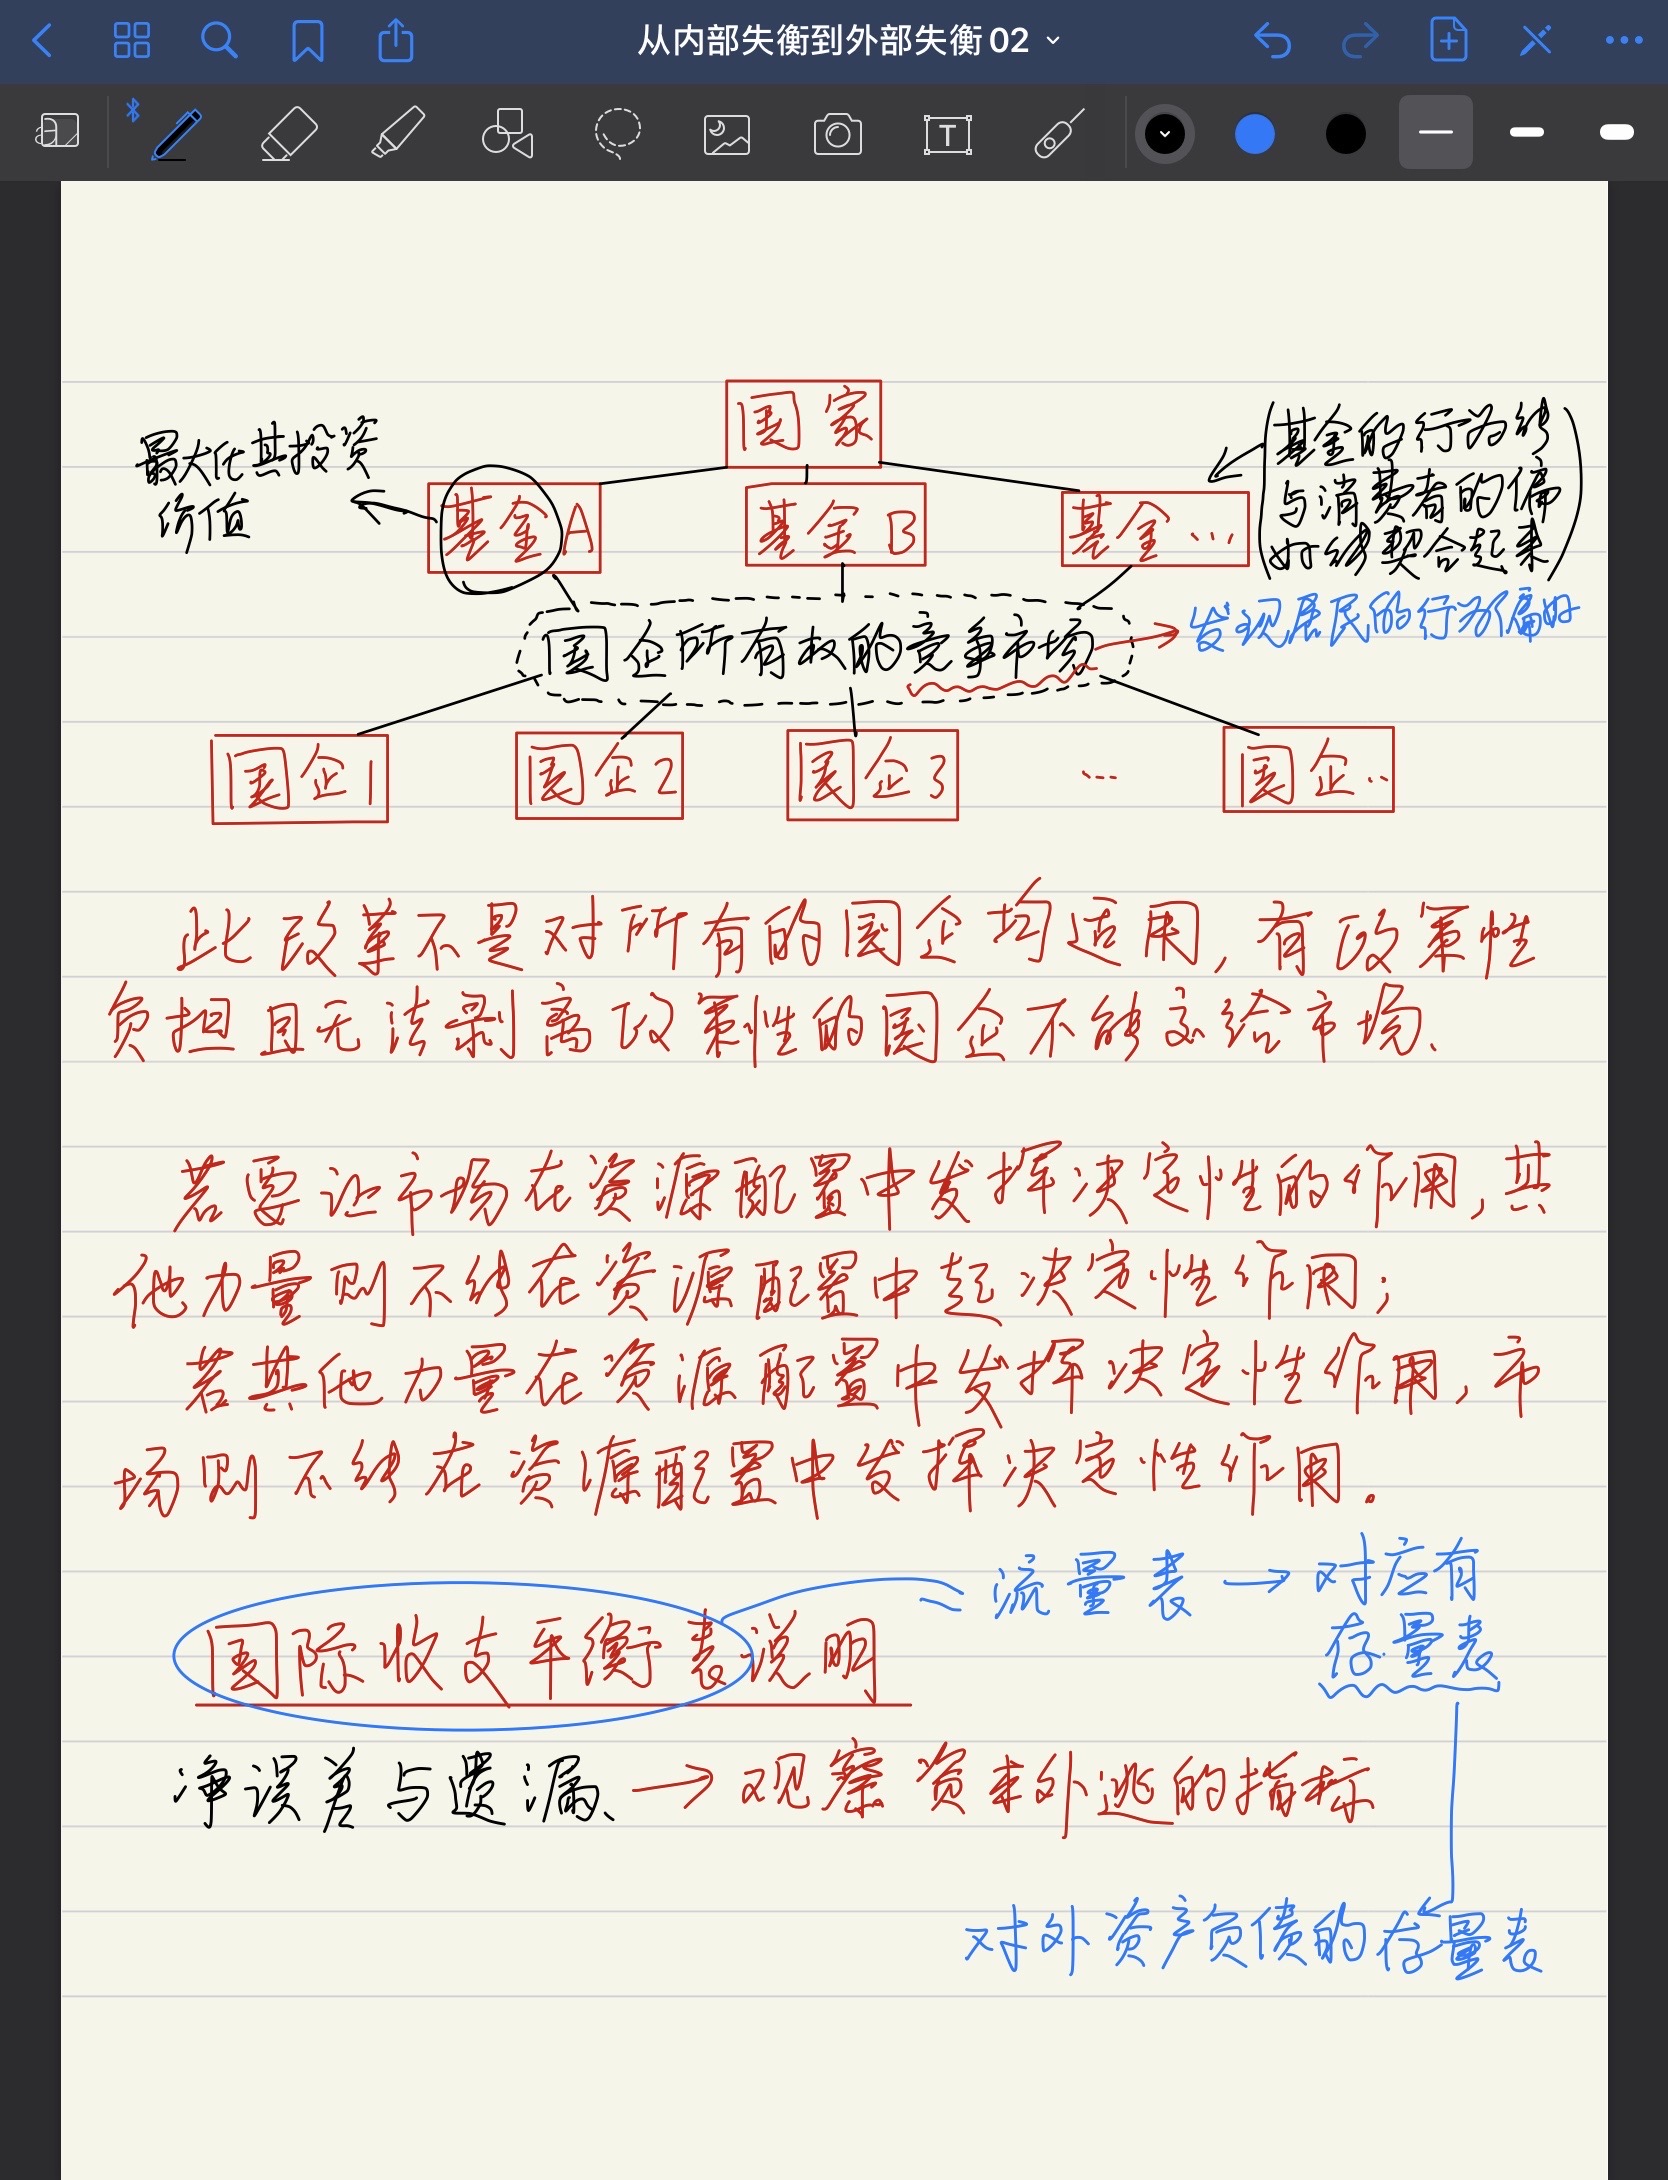 从内部失衡到外部失衡 02
T
国家
最大化其投资
价值
基金A
基金B
基金…
基金的行为能
与消费者的偏
好能契合起来
国企所有权的竞争市场
发现居民的行为偏好
国企1
国企2
国企3
…
国企…
此改革不是对所有的国企均适用,有政策性
负担且无法剥离政策性的国企不能交给市场.
若要让市场在资源配置中发挥决定性的作用,其
他力量则不能在资源配置中起决定性作用;
若其他力量在资源配置中发挥决定性作用,市
场则不能在资源配置中发挥决定性作用.
流量表→对应有
存量表
国际收支平衡表说明
净误差与遗漏、→观察资本外逃的指标
对外资产负债的存量表